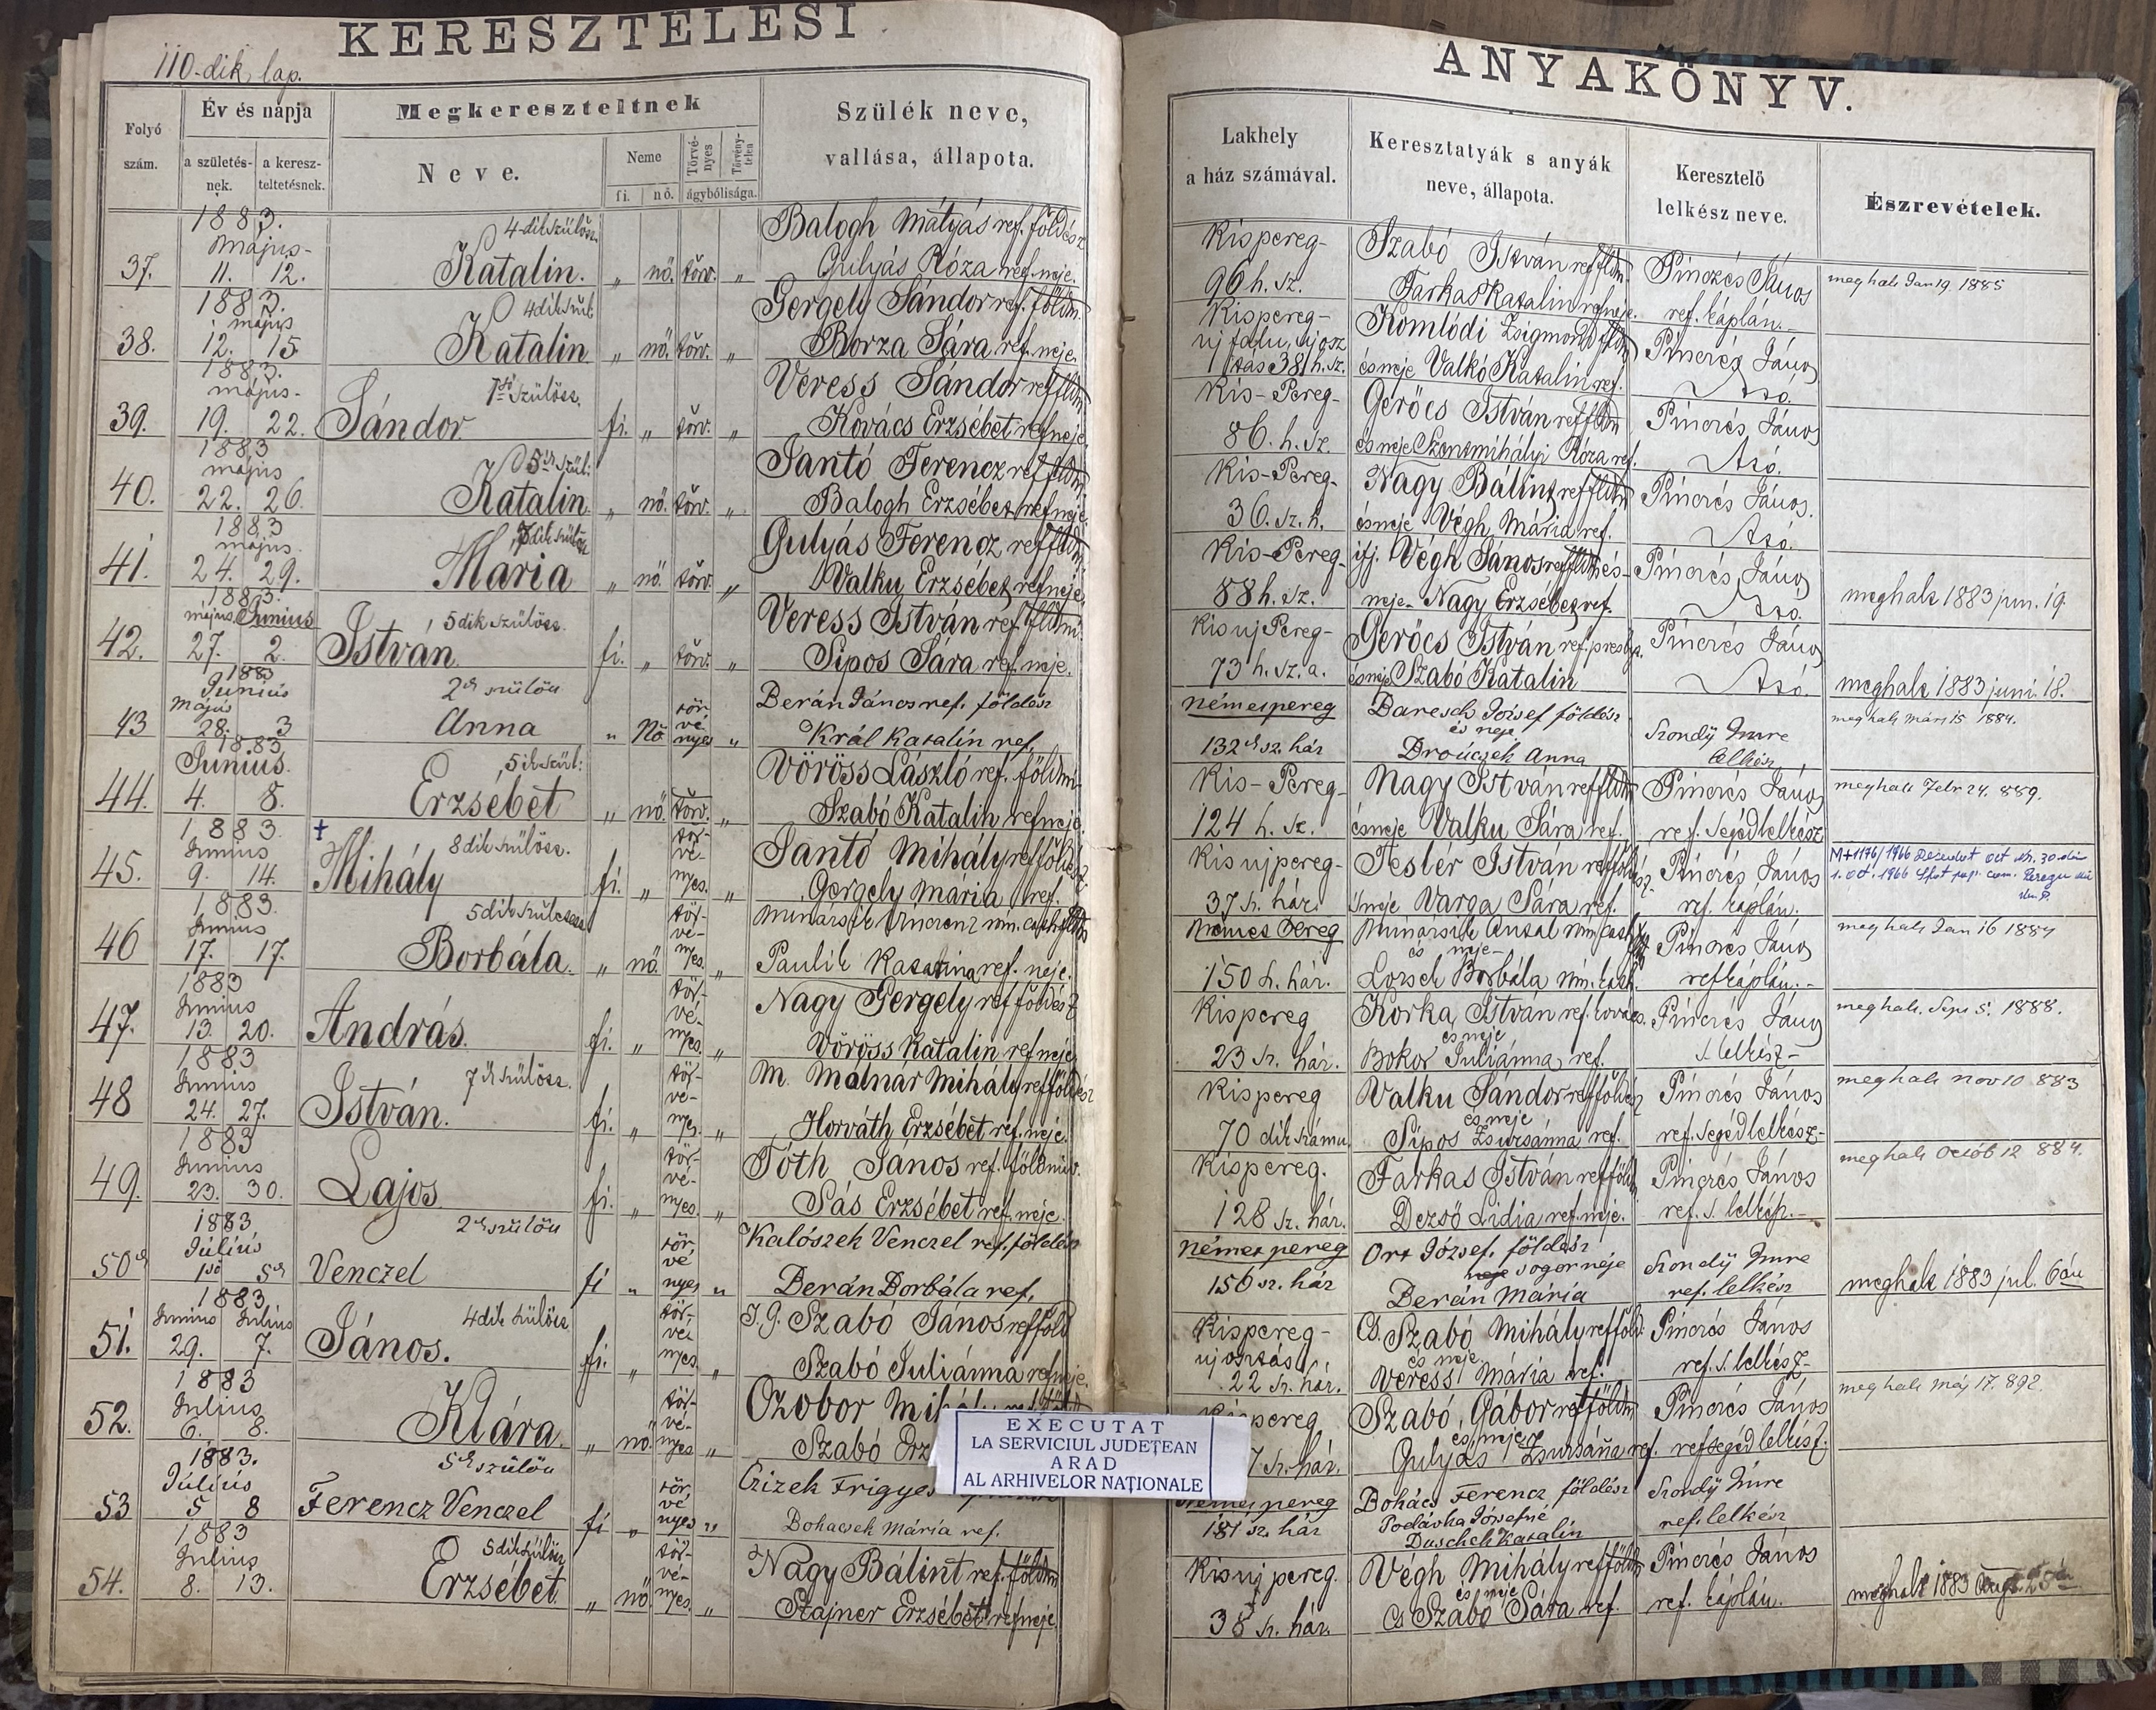 110-dik lap.
KERESZTELÉSI
ANYAKÖNYV.
Folyó szám.
Év és napja
a születés-nek.
a keresz-teltetésnek.
Megkereszteltnek
Neve.
Neme
fi.
nő.
Törvé-nyes
Törvény-telen
ágybólisága.
Szülék neve,
vallása, állapota.
Lakhely
a ház számával.
Keresztatyák s anyák
neve, állapota.
Keresztelő
lelkész neve.
Észrevételek.
1883. 4-dik szülöss. Balogh Mátyás ref. földész
Május-
37. 11. 12. Katalin. „ nő. törv. „ Gulyás Róza ref. neje.
Kispereg- Szabó István ref földm. Pinczés János meghalt Jan 19. 1885
96 h. sz. Farkas Katalin ref neje. ref. káplán.-
1883. 4dik szül. Gergely Sándor ref. földm.
május
38. 12. 15. Katalin „ nő. törv. „ Borza Sára ref. neje.
Kispereg- Komlódi Zsigmond
uj falu, ujosz Pinczés János
tás 38 h. sz. és neje Valkó Katalin ref.
1883. 1ső szülöss. Veress Sándor ref földm
május-
39. 19. 22. Sándor. fi. „ törv. „ Kovács Erzsébet ref neje
Kis-Pereg- Gerőcs István ref földm Pinczés János
86. h. sz. és neje Szentmihályi Róza ref.
1883 5ik szül. Santó Ferencz ref földm
május
40. 22. 26. Katalin. „ nő. törv. „ Balogh Erzsébet ref neje
Kis-Pereg- Nagy Bálint ref földm Pinczés János.
36. sz. h. és neje Végh Mária ref.
1883 dik szülöss Gulyás Ferencz ref földm
május.
41. 24. 29. Maria „ nő. törv. „ Valku Erzsébet ref neje
Kis-Pereg- ifj. Végh János ref földm és- Pinczés János
88 h. sz. neje- Nagy Erzsébet ref. meghalt 1883 jun. 19.
1883. 5dik szülöss. Veress István ref földm.
május Junius
42. 27. 2. István. fi. „ törv. „ Sipos Sára ref. neje.
Kis uj Pereg- Gerőcs István ref. Pinczés János
73 h. sz. a. és neje Szabó Katalin meghalt 1883 juni. 18.
1883 2ik szülött Berán János ref. földész
Junius
Május
43 28. 3 Anna „ Nő törvényes „ Král Katalin ref.
Németpereg Baresch József földész meghalt márt 15 1884.
és neje Szondy Imre
132ik sz. ház Anna lelkész
1883 5ik szül: Vöröss László ref. földm.
Junius.
44. 4. 8. Erzsébet „ nő. törv. „ Szabó Katalin ref neje
Kis-Pereg- Nagy István ref földm Pinczés János meghalt Febr 24. 889.
124 h. sz. és neje Valku Sára ref. ref. segédlelkész
1883. † 8dik szülöss. Santó Mihály ref földész
Junius
45. 9. 14. Mihály fi. „ törvényes. „ Gergely Mária ref.
Kis ujpereg- Testér István ref földész Pinczés János
37 sz. ház. s neje Varga Sára ref. ref. káplán.
1883. 5dik szülöss
Junius
46 17. 17. Borbála. „ nő. törvényes. „ Paulik Katalina ref. neje.
Német Pereg Antal Pinczés János meghalt Jan 16 1884
és neje-
150 h. ház. Borbála ref káplán.-
1883 Nagy Gergely ref földész
Junius
47. 13. 20. András. fi. „ törvényes. „ Vöröss Katalin ref neje
Kispereg Korka István ref. kovács. Pinczés János meghalt. Sept 5. 1888.
és neje
23 sz. ház. Bokor Juliánna ref. s. lelkész-
1883 7ik szülöss. M. Molnár Mihály ref földész
Junius
48 24. 27. István. fi. „ törvényes. „ Horváth Erzsébet ref. neje.
Kispereg Valku Sándor ref földész Pinczés János meghalt nov 10 883
és neje
70 dik számu Sipos Zsuzsánna ref. ref. segédlelkész-
1883 Tóth János ref. földmiv.
Junius
49. 23. 30. Lajos. fi. „ törvényes. „ Sás Erzsébet ref. neje.
Kispereg. Farkas István ref föld Pinczés János meghalt Octób 12 884.
128 sz. ház. Dezső Lidia ref. neje. ref. s. lelkész.-
1883 2ik szülött Kalószek Venczel ref. földész
Július
50ik 1ső 5ik Venczel fi „ törvényes „ Berán Borbála ref.
Németpereg Ort József, földész Szondy Imre
sogorneje
156 sz. ház Berán Mária ref. lelkész meghalt 1883 jul. 6án
1883 4dik szülöss J. G. Szabó János ref föld
Junius Julius
51. 29. 7. János. fi. „ törvényes. „ Szabó Juliánna ref neje.
Kispereg- Cs. Szabó Mihály ref föld. Pinczés János
ujosztás és neje
22 sz. ház. Veress Mária ref. ref. s. lelkész-
1883 Czobor Mihály
Julius
52. 6. 8. Klára. „ nő. törvényes „ Szabó Erz
Szabó Gábor ref földm Pinczés János meghalt Máj 17. 892.
és neje
7 sz. ház. Gulyás Zsuzsána ref. ref segédlelkész.
1883. 5ik szülött Czizek Frigyes
Július
53 5 8 Ferencz Venczel fi „ törvényes „ Bohacsek Mária ref.
Németpereg Bohács Ferencz földész Szondy Imre
Podávka Józsefné
181 sz. ház Duschek Katalin ref. lelkész
1883 5dik szülöss Nagy Bálint ref. földm
Julius
54. 8. 13. Erzsébet. „ nő. törvényes. „ Stajner Erzsébet ref neje.
Kis uj pereg. Végh Mihály ref földm Pinczés János
és neje
38 sz. ház. Cs Szabó Sára ref. ref. káplán. meghalt 1883
EXECUTAT
LA SERVICIUL JUDEȚEAN
ARAD
AL ARHIVELOR NAȚIONALE